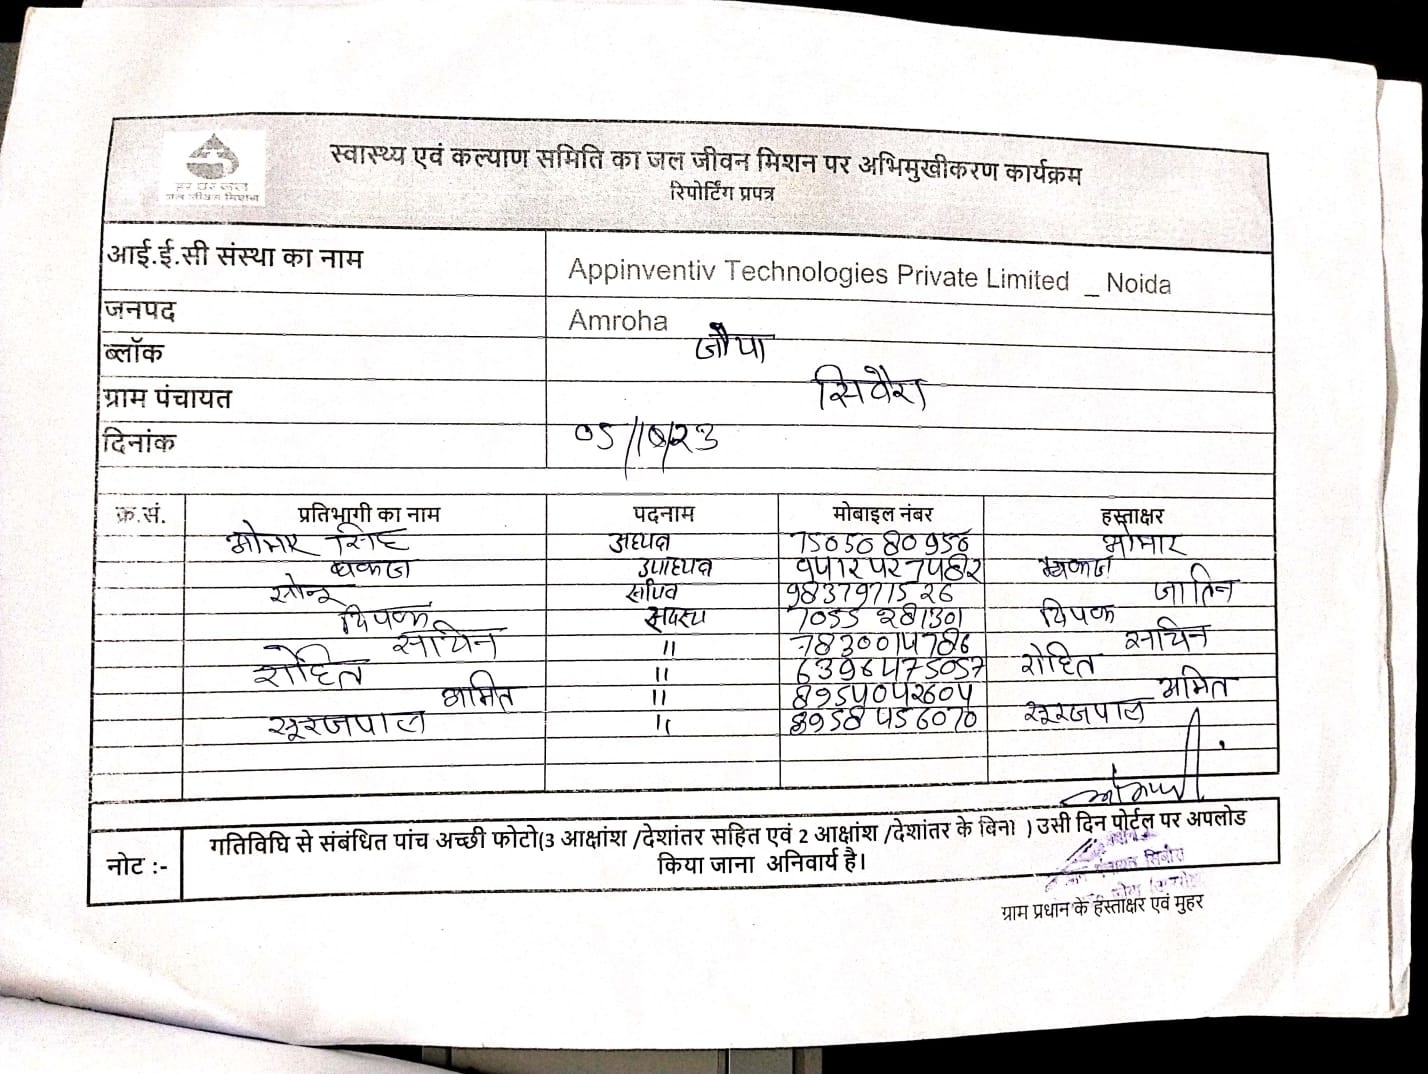 हर घर जल
जल जीवन मिशन
स्वास्थ्य एवं कल्याण समिति का जल जीवन मिशन पर अभिमुखीकरण कार्यक्रम
रिपोर्टिंग प्रपत्र
आई.ई.सी संस्था का नाम Appinventiv Technologies Private Limited _ Noida
जनपद Amroha
ब्लॉक जोया
ग्राम पंचायत
दिनांक 05/10/23
क्र.सं. प्रतिभागी का नाम पदनाम मोबाइल नंबर हस्ताक्षर
सिंह अध्यक्ष 7505080956
उपाध्यक्ष 9412427482
सचिव 9837971526 जातिन
दिपक सदस्य 7055281301 दिपक
साचिन " 7830014786 साचिन
रोहित " 6396475057 रोहित
अमित " 8954042604 अमित
सूरजपाल " 8958456070 सूरजपाल
नोट :- गतिविधि से संबंधित पांच अच्छी फोटो(3 आक्षांश /देशांतर सहित एवं 2 आक्षांश /देशांतर के बिना ) उसी दिन पोर्टल पर अपलोड
किया जाना अनिवार्य है।
ग्राम प्रधान के हस्ताक्षर एवं मुहर